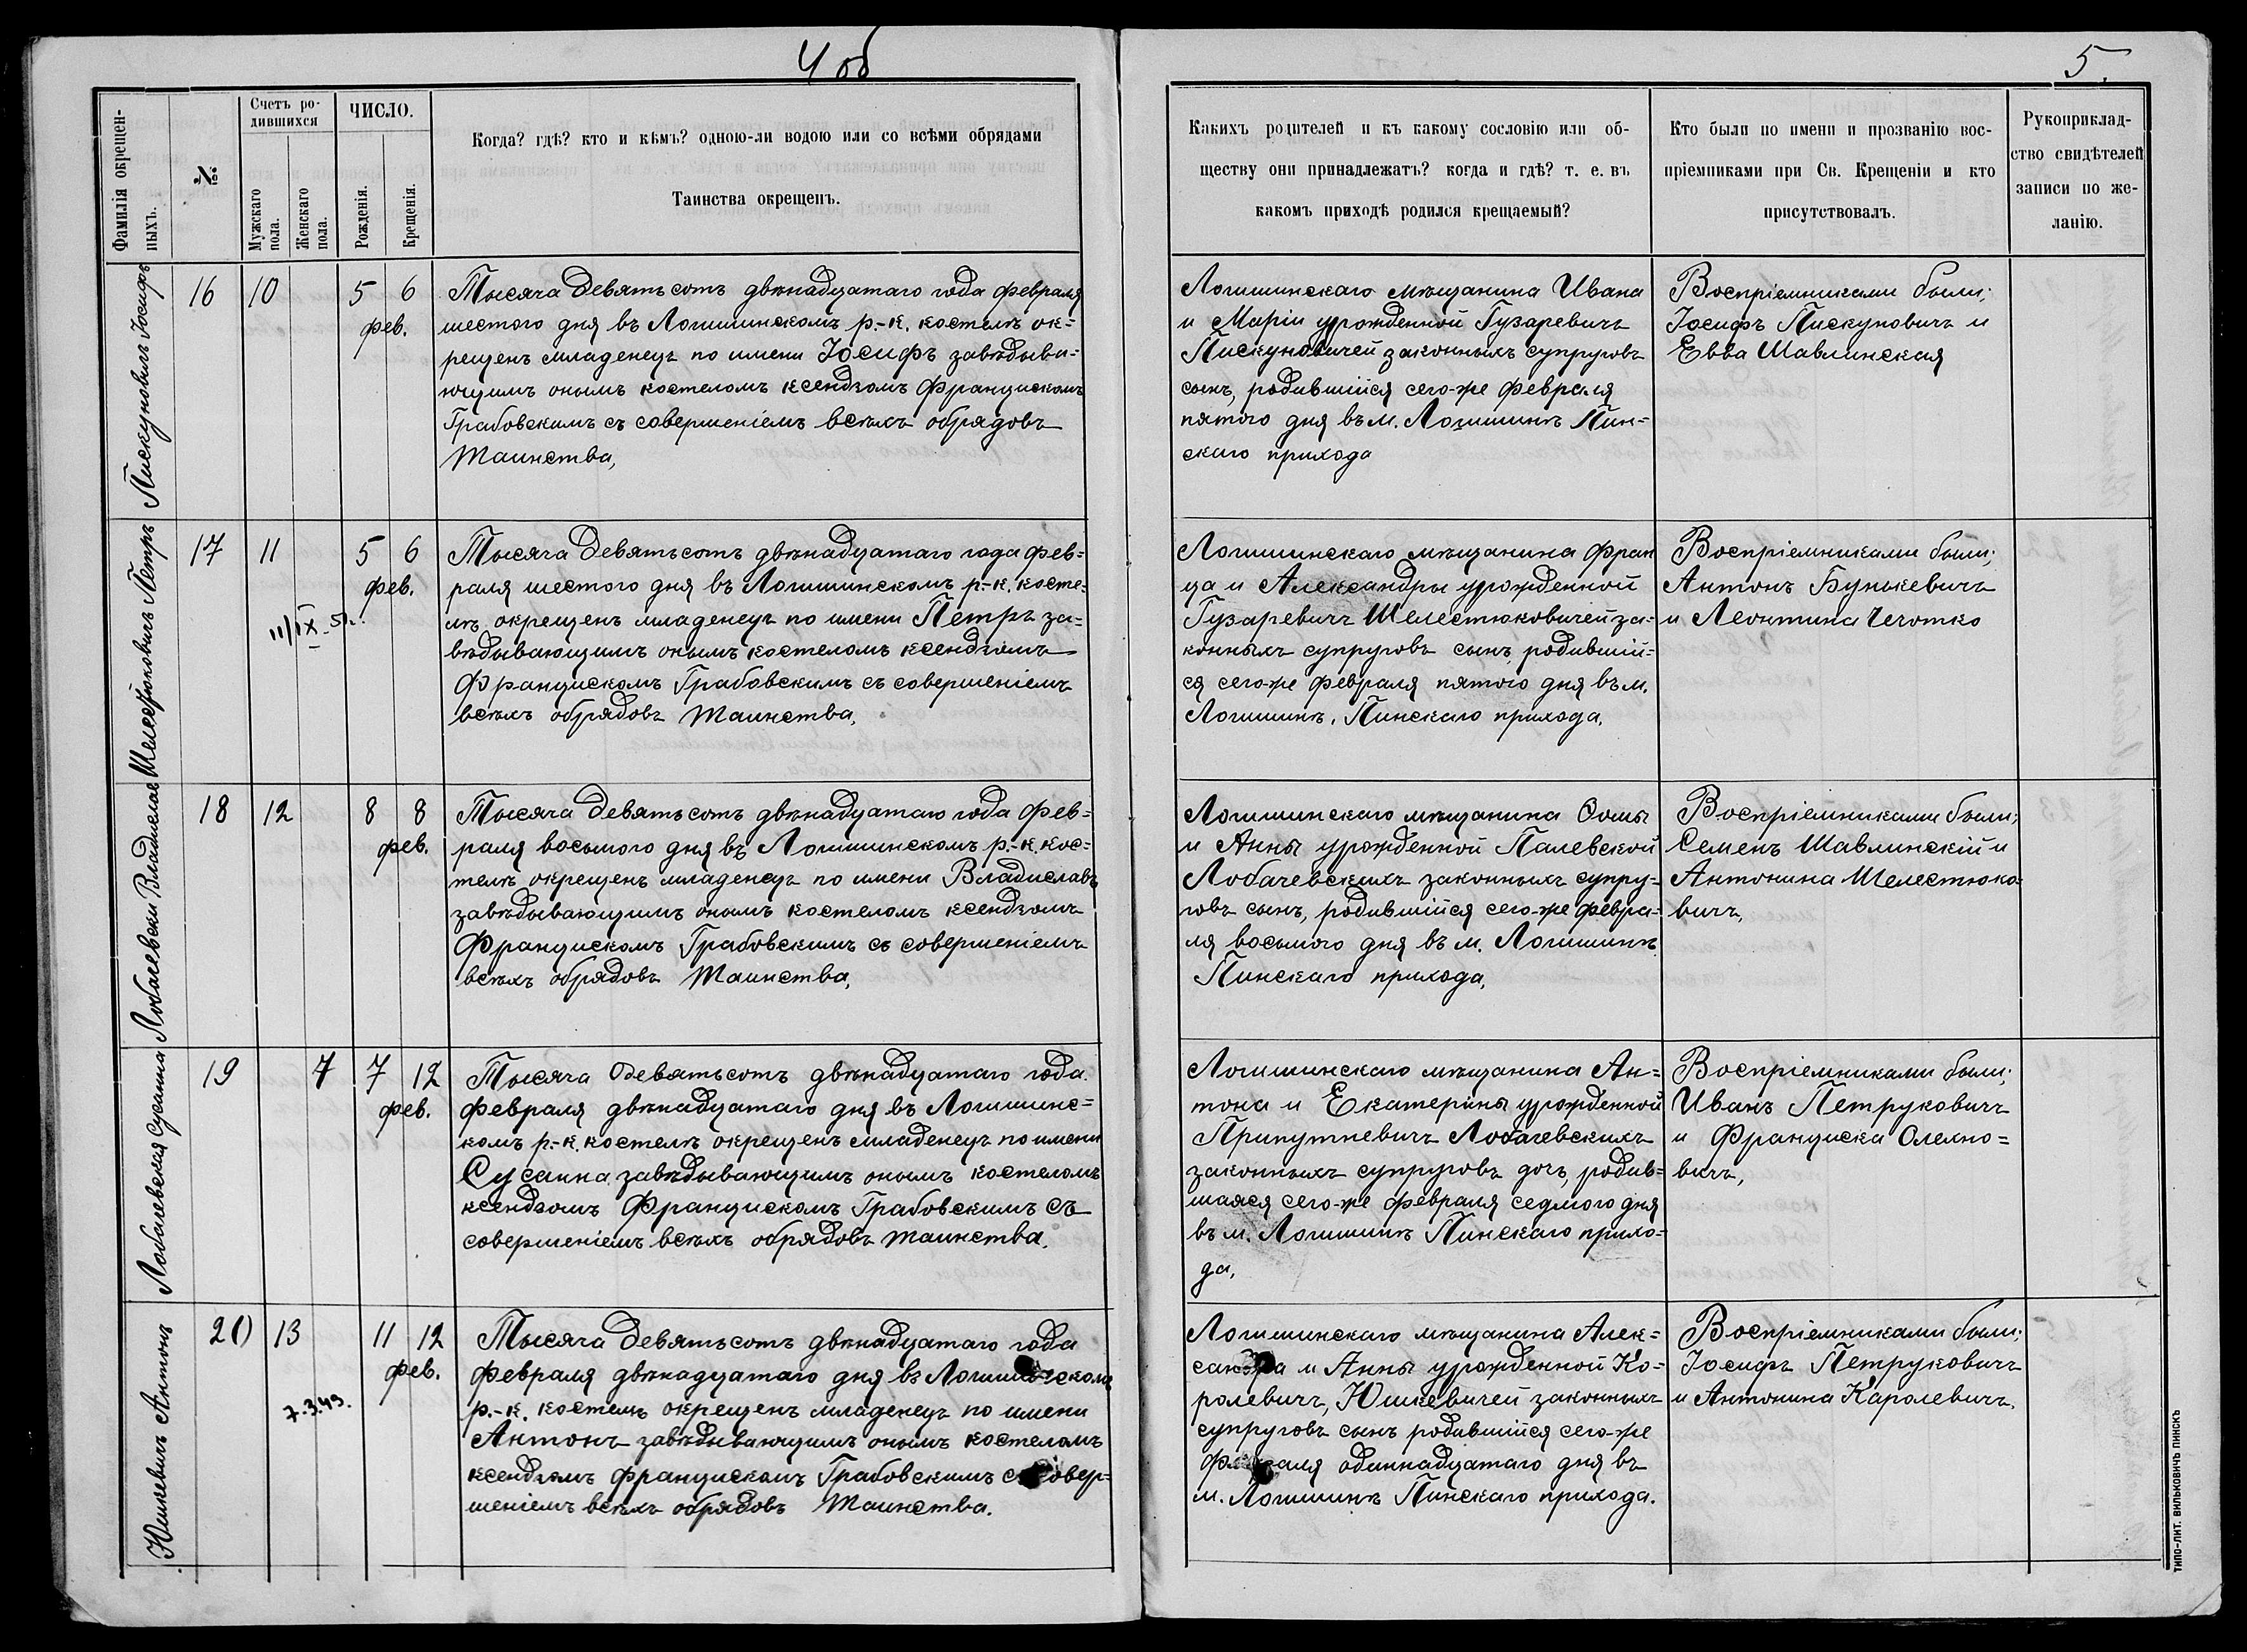 4 об
5.
Фамилія окрещен-
ныхъ.
№
Счетъ ро-
дившихся
Мужскаго
пола.
Женскаго
пола.
ЧИСЛО.
Рожденія.
Крещенія.
Когда? гдѣ? кто и кѣмъ? одною-ли водою или со всѣми обрядами
Таинства окрещенъ.
Какихъ родителей и къ какому сословію или об-
ществу они принадлежатъ? когда и гдѣ? т. е. въ
какомъ приходѣ родился крещаемый?
Кто были по имени и прозванію вос-
пріемниками при Св. Крещеніи и кто
присутствовалъ.
Рукоприклад-
ство свидѣтелей
записи по же-
ланію.
Пискуновичъ Іосифъ
16 10 5 6
фев.
Тысяча девятьсотъ двѣнадцатаго года февраля
шестого дня въ Логишинскомъ р.-к. костелѣ ок=
рещенъ младенецъ по имени Іосифъ завѣдыва=
ющимъ онымъ костеломъ ксендзомъ Францискомъ
Грабовскимъ съ совершеніемъ всѣхъ обрядовъ
Таинства,
Логишинскаго мѣщанина Ивана
и Маріи урожденной Гузаревичъ
Пискуновичей законныхъ супруговъ
сынъ, родившійся сего-же февраля
пятого дня въ м. Логишинѣ Пин=
скаго прихода
Воспріемниками были;
Іосифъ Пискуновичъ и
Евва Шавлинская
Шелестюковичъ Петръ
17 11 5 6
фев.
11/IX-51г.
Тысяча девятьсотъ двѣнадцатаго года фев=
раля шестого дня въ Логишинскомъ р.-к. косте=
лѣ окрещенъ младенецъ по имени Петръ за=
вѣдывающимъ онымъ костеломъ ксендзомъ
Францискомъ Грабовскимъ съ совершеніемъ
всѣхъ обрядовъ Таинства.
Логишинскаго мѣщанина Фран
ца и Александры урожденной
Гузаревичъ Шелестюковичей за=
конныхъ супруговъ сынъ, родившій=
ся сего-же февраля пятого дня въ м.
Логишинѣ, Пинскаго прихода.
Воспріемниками были;
Антонъ Бунькевичъ
и Леонтина Чечотко
Лобачевски Владиславъ
18 12 8 8
фев.
Тысяча девятьсотъ двѣнадцатаго года фев=
раля восьмого дня въ Логишинскомъ р.-к. кос=
телѣ окрещенъ младенецъ по имени Владиславъ
завѣдывающимъ онымъ костеломъ ксендзомъ
Францискомъ Грабовскимъ съ совершеніемъ
всѣхъ обрядовъ Таинства,
Логишинскаго мѣщанина Ѳомы
и Анны урожденной Палевской
Лобачевскихъ законныхъ супру=
говъ сынъ, родившійся сего-же февра=
ля восьмого дня въ м. Логишинѣ
Пинскаго прихода,
Воспріемниками были;
Семенъ Шавлинскій и
Антонина Шелестюко=
вичъ,
Лобачевская Сусанна
19 7 7 12
фев.
Тысяча девятьсотъ двѣнадцатаго года
февраля двѣнадцатаго дня въ Логишинс=
комъ р.-к. костелѣ окрещенъ младенецъ по имени
Сусанна завѣдывающимъ онымъ костеломъ
ксендзомъ Францискомъ Грабовскимъ съ
совершеніемъ всѣхъ обрядовъ таинства.
Логишинскаго мѣщанина Ан=
тона и Екатерины урожденной
Припутневичъ Лобачевскихъ
законныхъ супруговъ дочь, родив=
шаяся сего-же февраля седмого дня
въ м. Логишинѣ Пинскаго прихо=
да,
Воспріемниками были;
Иванъ Петруковичъ
и Франциска Олехно=
вичъ,
Юшкевичъ Антонъ
20 13 11 12
фев.
7.3.49.
Тысяча девятьсотъ двѣнадцатаго года
февраля двѣнадцатаго дня въ Логишинскомъ
р.-к. костелѣ окрещенъ младенецъ по имени
Антонъ завѣдывающимъ онымъ костеломъ
ксендзомъ Францискомъ Грабовскимъ съ совер=
шеніемъ всѣхъ обрядовъ Таинства.
Логишинскаго мѣщанина Алек=
сандра и Анны урожденной Ко=
ролевичъ, Юшкевичей законныхъ
супруговъ сынъ родившійся сего-же
февраля одиннадцатаго дня въ
м. Логишинѣ Пинскаго прихода.
Воспріемниками были;
Іосифъ Петруковичъ
и Антонина Каролевичъ.
ТИПО-ЛИТ. ВИЛЬКОВИЧЪ ПИНСКЪ